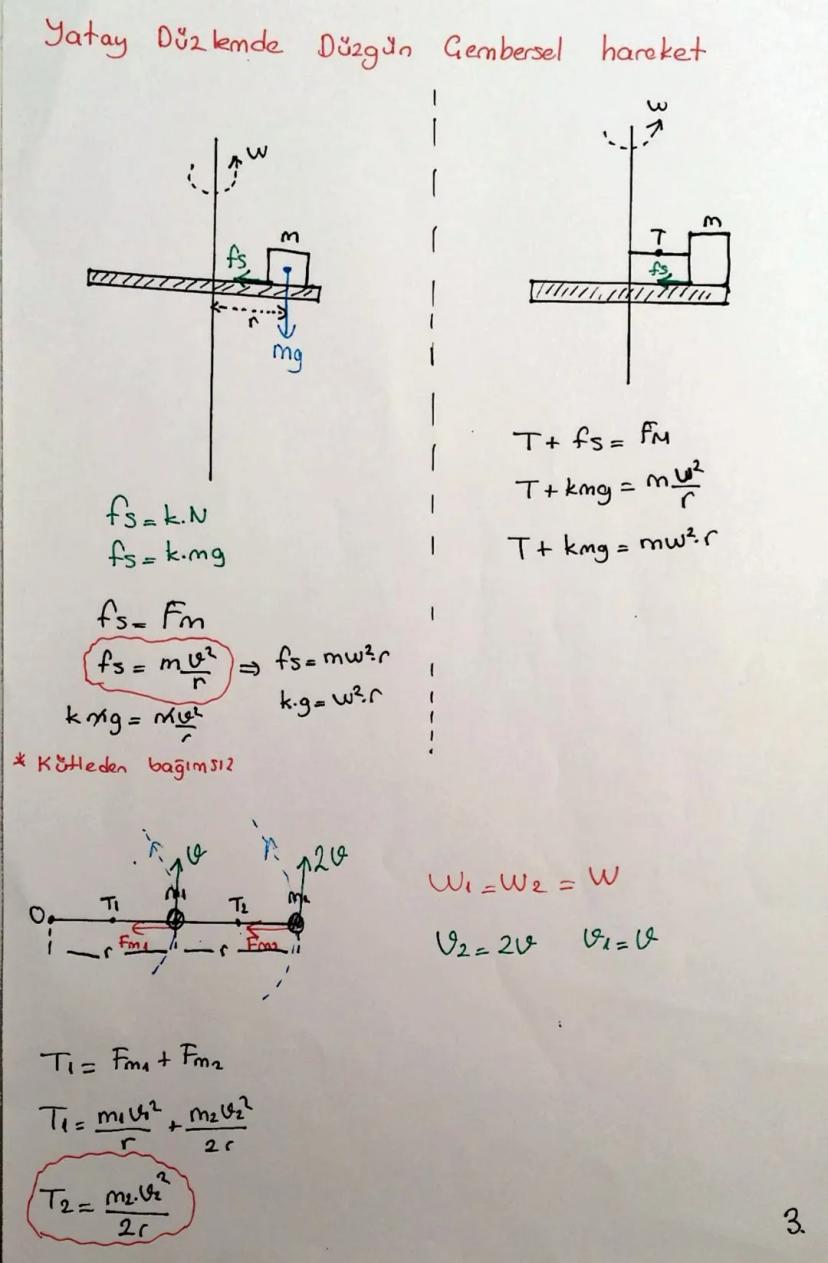 Yatay Düzlemde Düzgün Çembersel hareket
w
m
fs
r
mg
fs = k.N
fs = k.mg
fs = Fm
fs = m v²/r ⇒ fs = mw².r
kmg = mv²/r
k.g = w².r
* Kütleden bağımsız
w
m
T
fs
T + fs = FM
T + kmg = m v²/r
T + kmg = mw².r
r
v
r
2v
O
T1
m1
T2
m2
Fm1
Fm2
r
r
W1 = W2 = W
v2 = 2v v1 = v
T1 = Fm1 + Fm2
T1 = m1v1²/r + m2v2²/2r
T2 = m2.v2²/2r
3.